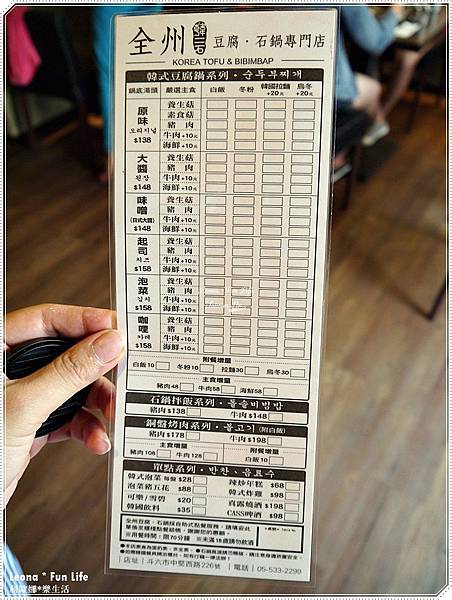 全州 豆腐·石鍋專門店
KOREA TOFU & BIBIMBAP
韓式豆腐鍋系列·순두부찌개
鍋底湯頭 嚴選主食 白飯 冬粉 韓國拉麵+20元 烏冬+20元
原味 오리지널 $138
養生菇
素食菇
豬肉
牛肉+10元
海鮮+10元
大醬 된장 $148
養生菇
豬肉
牛肉+10元
海鮮+10元
味噌 (日式大醬) $148
養生菇
豬肉
牛肉+10元
海鮮+10元
起司 치즈 $158
養生菇
豬肉
牛肉+10元
海鮮+10元
泡菜 김치 $158
養生菇
豬肉
牛肉+10元
海鮮+10元
咖哩 카레 $158
養生菇
豬肉
牛肉+10元
海鮮+10元
附餐增量
白飯10 冬粉10 拉麵30 烏冬30
主食增量
豬肉48 牛肉58 海鮮58
石鍋拌飯系列·돌솥비빔밥
豬肉$138 牛肉$148
銅盤烤肉系列·불고기(附白飯)
豬肉$178 牛肉$198
主食增量 附餐增量
豬肉108 牛肉128 白飯10
單點系列·반찬、음료수
韓式泡菜 每盤 $28 辣炒年糕 $68
泡菜豬五花 $88 韓式炸雞 $98
可樂/雪碧 $20 真露燒酒 $198
韓國飲料 $35 CASS啤酒 $98
※用餐時間:限70分鐘 ※未滿18歲請勿飲酒
店址│斗六市中堅西路226號│電話│05-533-2299
Leona * Fun Life
樂生活